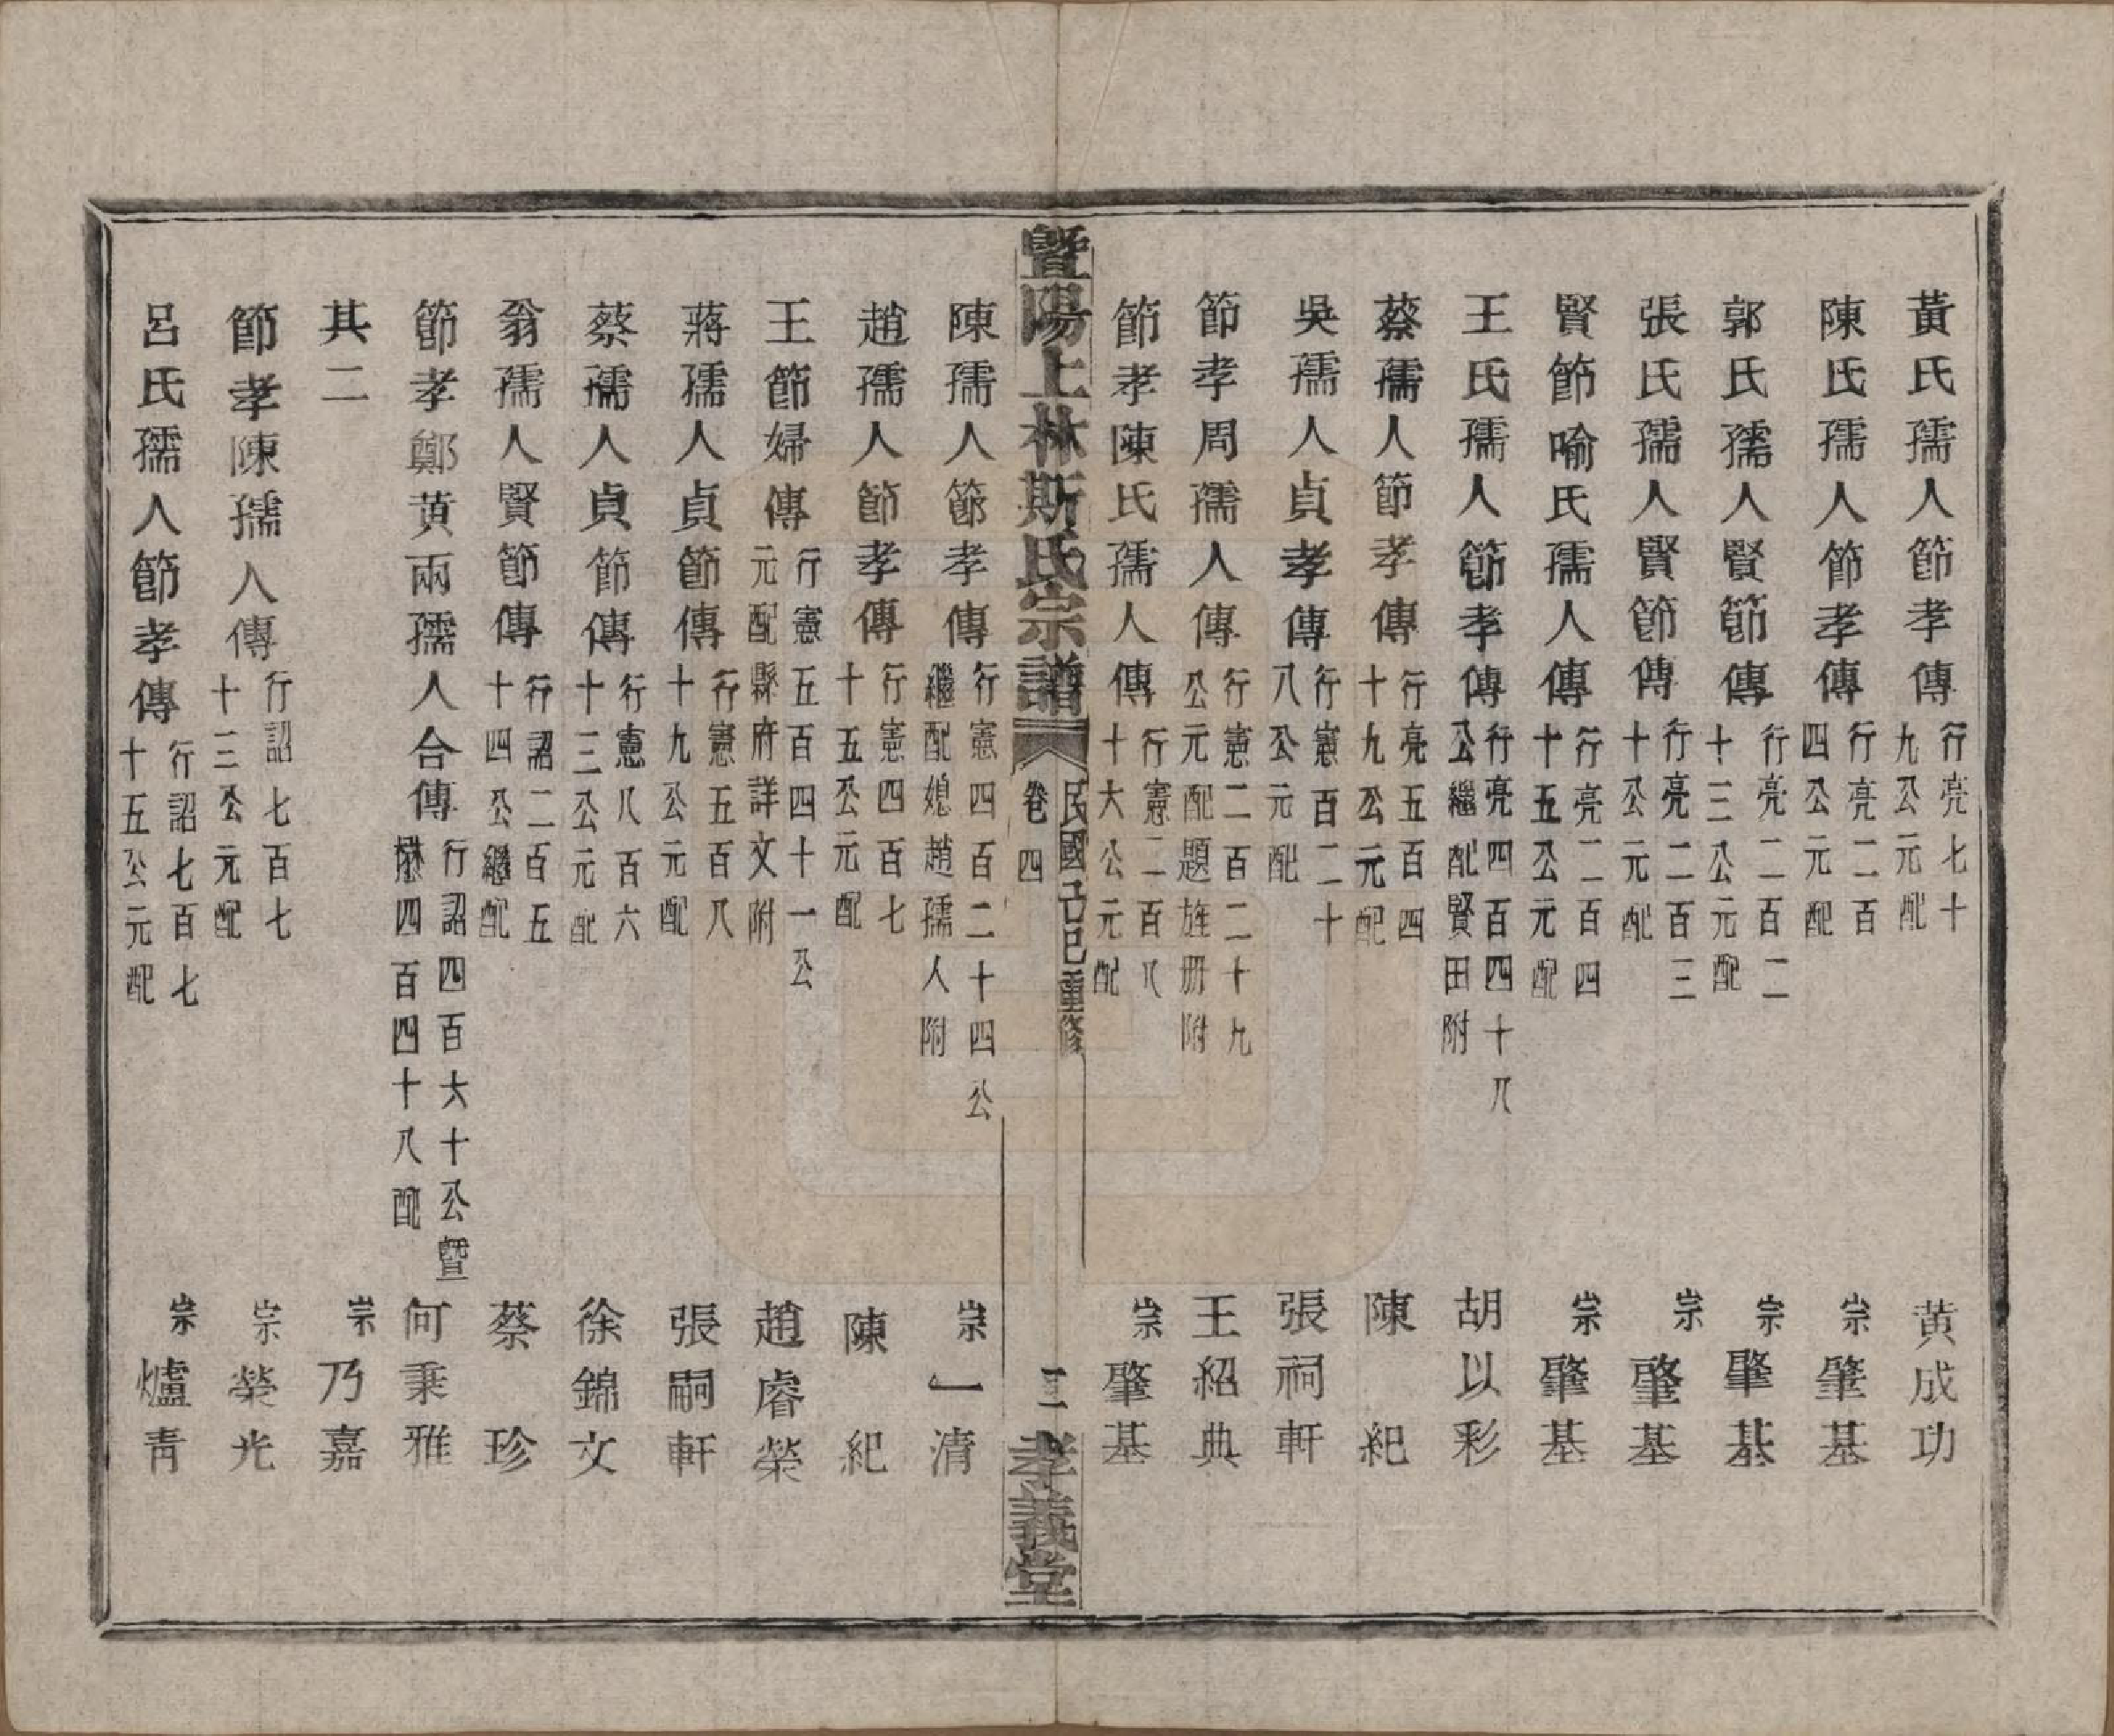 黃氏孺人節孝傳 行亮七十九公元配 黄成功
陳氏孺人節孝傳 行亮二百四公元配 宗肇基
郭氏孺人賢節傳 行亮二百二十三公元配 宗肇基
張氏孺人賢節傳 行亮二百三十公元配 宗肇基
賢節喻氏孺人傳 行亮二百四十五公元配 宗肇基
王氏孺人節孝傳 行亮四百四十八公繼配賢田附 胡以彩
蔡孺人節孝傳 行亮五百四十九公元配 陳紀
吳孺人貞孝傳 行憲百二十八公元配 張祠軒
節孝周孺人傳 行憲二百二十九公元配題旌册附 王紹典
節孝陳氏孺人傳 行憲二百八十六公元配 宗肇基
暨陽上林斯氏宗譜 卷四 民國己巳重修 三 孝義堂
陳孺人節孝傳 行憲四百二十四公繼配媳趙孺人附 宗一清
趙孺人節孝傳 行憲四百七十五公元配 陳紀
王節婦傳 行憲五百四十一公元配縣府詳文附 趙睿榮
蔣孺人貞節傳 行憲五百八十九公元配 張嗣軒
蔡孺人貞節傳 行憲八百六十三公元配 徐錦文
翁孺人賢節傳 行詔二百五十四公繼配 蔡珍
節孝鄭黄兩孺人合傳 行詔四百六十公暨楙四百四十八配 何秉雅
其二 宗乃嘉
節孝陳孺人傳 行詔七百七十三公元配 宗榮光
呂氏孺人節孝傳 行詔七百七十五公元配 宗爐青